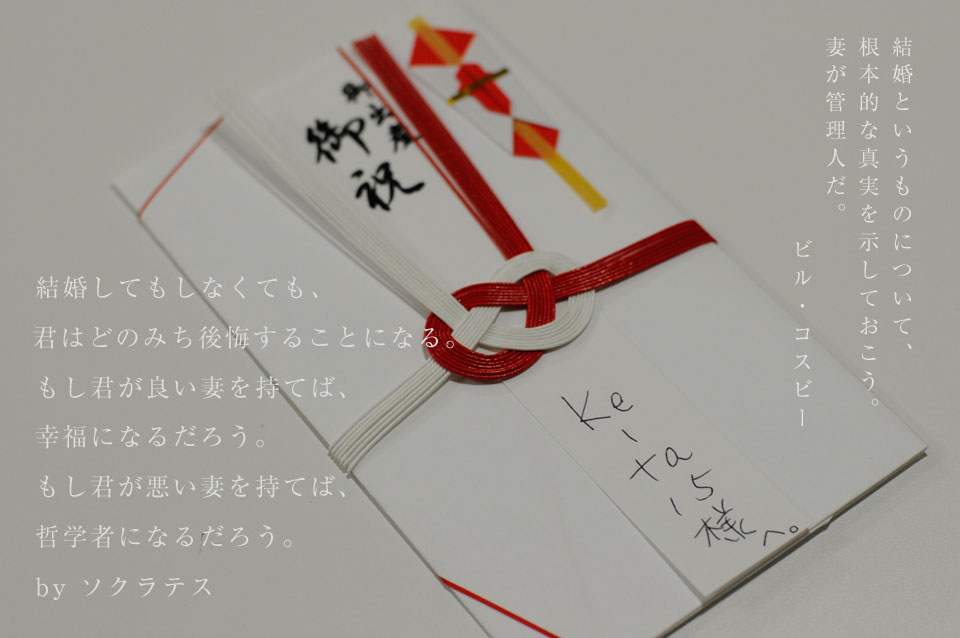 結婚というものについて、
根本的な真実を示しておこう。
妻が管理人だ。
ビル・コスビー
御出産
御祝
結婚してもしなくても、
君はどのみち後悔することになる。
もし君が良い妻を持てば、
幸福になるだろう。
もし君が悪い妻を持てば、
哲学者になるだろう。
by ソクラテス
Ke-ta-15様へ。